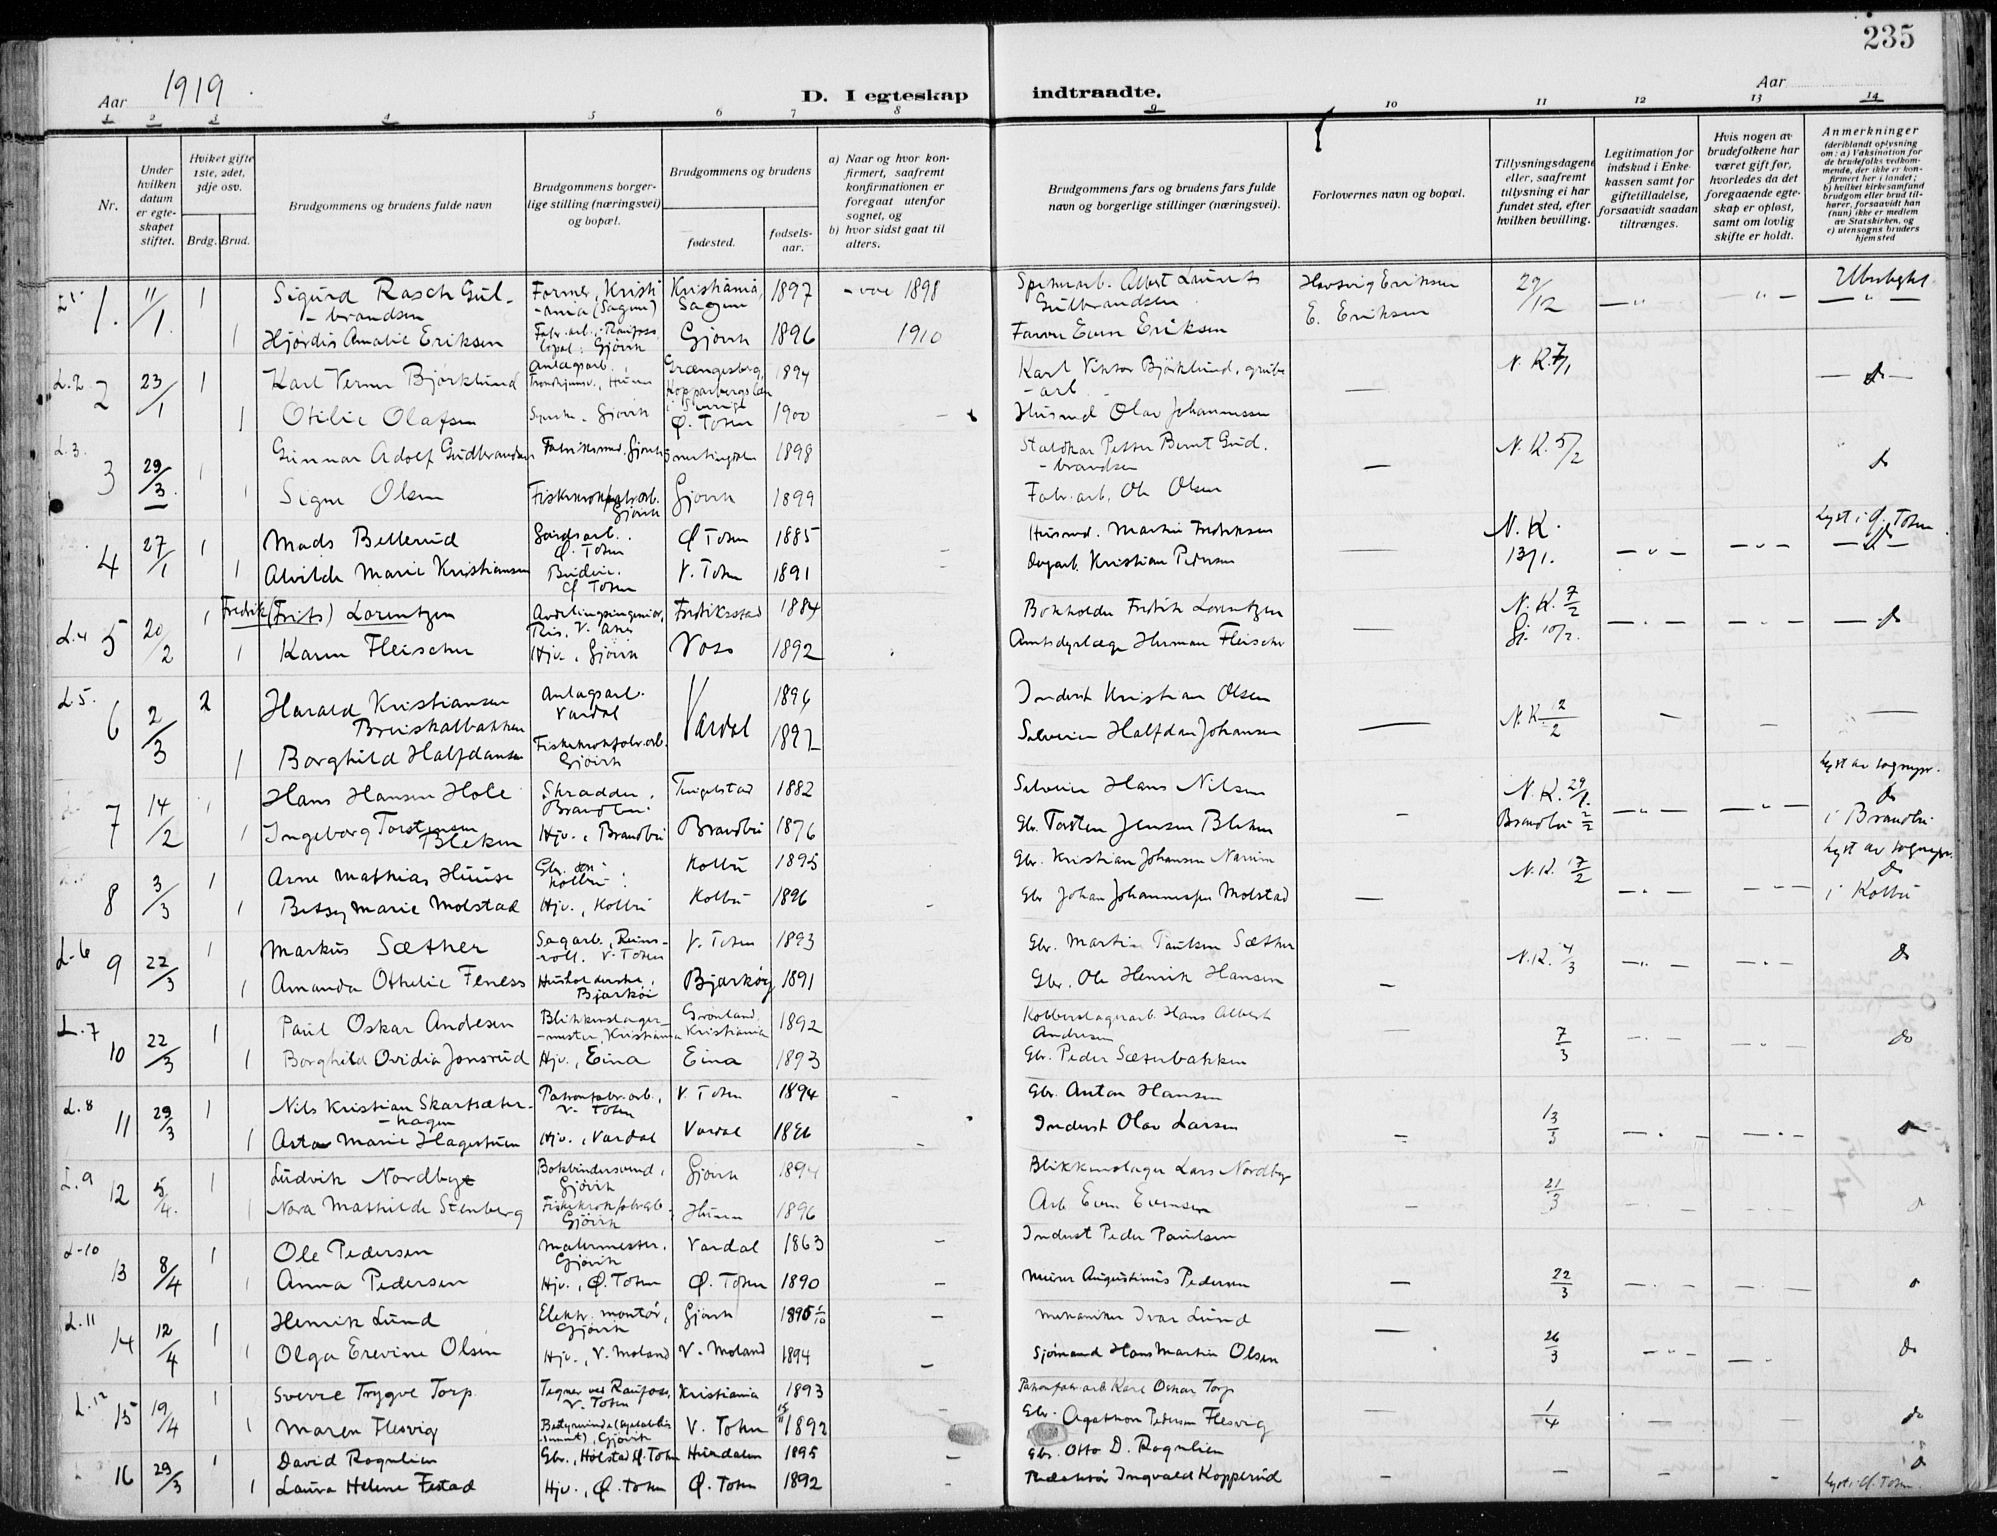 235
Aar 1919. D. I egteskap indtraadte. Aar
1 2 3 4 5 6 7 8 9 10 11 12 13 14
Nr.
Under hvilken datum er egteskapet stiftet.
Hviket gifte 1ste, 2det, 3dje osv.
Brdg. Brud.
Brudgommens og brudens fulde navn
Brudgommens borgerlige stilling (næringsvei) og bopæl.
Brudgommens og brudens
fødested. fødselsaar.
a) Naar og hvor konfirmert, saafremt konfirmationen er foregaat utenfor sognet, og
b) hvor sidst gaat til alters.
Brudgommens fars og brudens fars fulde navn og borgerlige stillinger (næringsvei).
Forlovernes navn og bopæl.
Tillysningsdagene eller, saafremt tillysning ei har fundet sted, efter hvilken bevilling.
Legitimation for indskud i Enkekassen samt for giftetilladelse, forsaavidt saadan tiltrænges.
Hvis nogen av brudefolkene har været gift før, hvorledes da det foregaaende egteskap er opløst, samt om lovlig skifte er holdt.
Anmerkninger (deriblandt oplysning om: a) Vaksination for de brudefolks vedkommende, der ikke er konfirmert her i landet; b) hvilket kirkesamfund brudgom eller brud tilhører, forsaavidt han (hun) ikke er medlem av Statskirken, og c) utensogns bruders hjemsted
L 1 1. 11/1. 1 Sigurd Rasch Gulbrandsen Former, Kristiania (Sagene) Kristiania, Sagene 1897 1898 Albert Laurits Gulbrandsen 29/12
1 Hjørdis Amalie Eriksen Fabr.arb. Raufoss bopæl: Gjøvik Gjøvik 1896 1910 Farver Even Eriksen E. Eriksen
L. 2 2 23/1 1 Karl Verner Bjørklund Anlægsarb. Grængesberg, Kopparbergs län i Sverige 1894 Karl Viktor Bjørklund, grubearb N. K. 7/1 do
1 Otilie Olafsen Gjøvik Ø. Toten 1900 Husmd Olav Johannessen
L. 3. 3 29/3. 1 Gunnar Adolf Gudbrandsen Gjøvik 1898 Staldkar Petter Bernt Gudbrandsen N. K. 5/2 do
1 Signe Olsen Fiskekrokfabr.arb. Gjøvik Gjøvik 1899 Fabr.arb. Ole Olsen
4 27/1 1 Mads Bellerud Gaardsarb. Ø. Toten Ø Toten 1885 Husmd. Martin Fredriksen N. K. 13/1. Lyst i Ø. Toten do
1 Alvilde Marie Kristiansen Budeie. Ø Toten V. Toten 1891 Dagarb. Kristian Pedersen
L. 4 5 20/2 1 Fredrik (Frits) Lorentzen Avdelingsingeniør, Fredriksstad 1884 Bokholder Fredrik Lorentzen N. K. 7/2 Gj. 10/2. do
1 Karen Fleischer Hjv., Gjøvik Voss 1892 Amtsdyrlæge Herman Fleischer
L 5. 6 2/3 2 Harald Kristiansen Bruiskalbakken Anlægsarb. Vardal Vardal 1896 Inderst Kristian Olsen N. K. 12/2
1 Borghild Halfdansen Fiskekrokfabr.arb. Gjøvik 1892 Salveier Halfdan Johansen
7 14/2 1 Hans Hansen Hole Skrædder. Brandbu. Tingelstad 1882 Selveier Hans Nilsen N. K. 29/1. Brandbu 2/2 Lyst av sognepr. do i Brandbu
1 Ingeborg Torstensen Bleken Hjv., Brandbu Brandbu 1876 Gbr. Torsten Jensen Bleken
8 3/3 1 Arne Mathias Huuse Gbr. Kolbu. Kolbu 1895 Gbr. Kristian Johansen N. K. 17/2 Lyst av sognepr. do i Kolbu
1 Betsy Marie Molstad Hjv., Kolbu Kolbu 1896 Gbr Johan Johannessen Molstad
L 6 9 22/3 1 Markus Sæther Sagarb., Reinsvoll. V. Toten V. Toten 1893 Gbr. Martin Paulsen Sæther N. K. 4/3 do
1 Amanda Othelie Feness Husholderske, Bjarkøi Bjarkøy 1891 Gbr. Ole Henrik Hansen
L. 7 10 22/3 1 Paul Oskar Andresen Blikkenslagermester, Kristiania Grønland, Kristiania 1892 Kobberslagerarb. Hans Albert Andresen 7/3 do
1 Borghild Ovidia Jonsrud Hjv., Eina Eina 1893 Gbr. Peder Sæterbakken
L. 8 11 29/3 1 Nils Kristian Skartsæterhagen Patronfabr.arb., V. Toten V. Toten 1894 Gbr. Anton Hansen 13/3
1 Asta Marie Hagestuen Hjv., Vardal Vardal 1896 Inderst Olav Larsen
L. 9 12 5/4. 1 Ludvik Nordbye Bokbindersvend, Gjøvik Gjøvik 1894 Blikkenslager Lars Nordbye 21/3
1 Nora Mathilde Stenberg Fiskekrokfabr.arb. Gjøvik Hunn 1896 Arb Even Evensen
L-10 13 8/4 1 Ole Pedersen Malermester, Gjøvik Vardal 1863 Inderst Peder Paulsen 22/3
1 Anna Pedersen Hjv., Ø. Toten Ø. Toten 1890 Murer Augustinus Pedersen
L. 11 14 12/4 1 Henrik Lund Elektr. montør, Gjøvik Gjøvik 1895 Mekaniker Ivar Lund 26/3 do
1 Olga Erevine Olsen Hjv., V. Moland V. Moland 1894 Sjømand Hans Martin Olsen
L. 12 15 19/4 1 Sverre Trygve Torp Tegner ved Raufoss, V. Toten Kristiania 1893 Patronfabr.arb Karl Oskar Torp 1/4 do
1 Maren Flesvig Gjøvik V. Toten 1892 Gbr. Agathon Pedersen Flesvig
16 29/3 1 David Rognlien Gbr., Holstad Ø. Toten Hurdalen 1895 Gbr. Otto D. Rognlien
1 Laura Helene Festad Hjv., Ø. Toten Ø. Toten 1892 Redaktør Ingvald Kopperud Lyst i Ø. Toten.